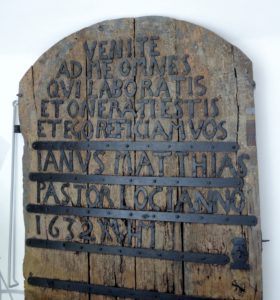 VENITE
AD ME OMNES
QVI LABORATIS
ET ONERATI ESTIS
ET EGO REFICIAM VOS
IANVS MATTHIAS
PASTOR LOCI ANNO